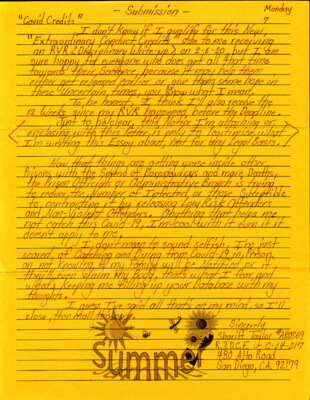 - Submission -
Monday
7
"Covid Credits"
I don't know if I qualify for this New,
"Extraordinary Conduct Credits" due to me receiving
an RVR (Disciplinary Write up) on 2-6-20, but I am
sure happy for everyone who does get all that time
towards their Sentence, because it may help them
either get released earlier or give them some Hope in
these Uncertain times, you know what I mean.
To be honest, I think I'll also receive the
12 Weeks since my RVR happened before the Deadline.
Just to back up, this Notice I'm attaching or
enclosing with this letter is only to legitimize what
I'm writing this Essay about, not for any legal basis.
Now that things are getting worse inside other
Prisons with the Spread of Coronavirus and more Deaths,
the Prison Officials or Administrative Branch is trying
to reduce the Number of Infected or those Susceptible
to contracting it by releasing Low Risk Offenders
and Non-Violent Offenders. Anything that helps me
not catch this Covid-19, I'm cool with it even if it
doesn't apply to me.
I don't mean to sound selfish, I'm just
scared of Catching and Dying from Covid-19 in Prison,
an not knowing if my family will be notified or if
they'll even claim my body, that's what I fear, and
what's keeping me filling up your Database with my
thoughts.
I guess I've said all that's on my mind, so I'll
close, then mail this
Sincerely
Shariff Taylor
R.J.D.C.F.
480 Alta Road
San Diego, CA. 92179
Summer